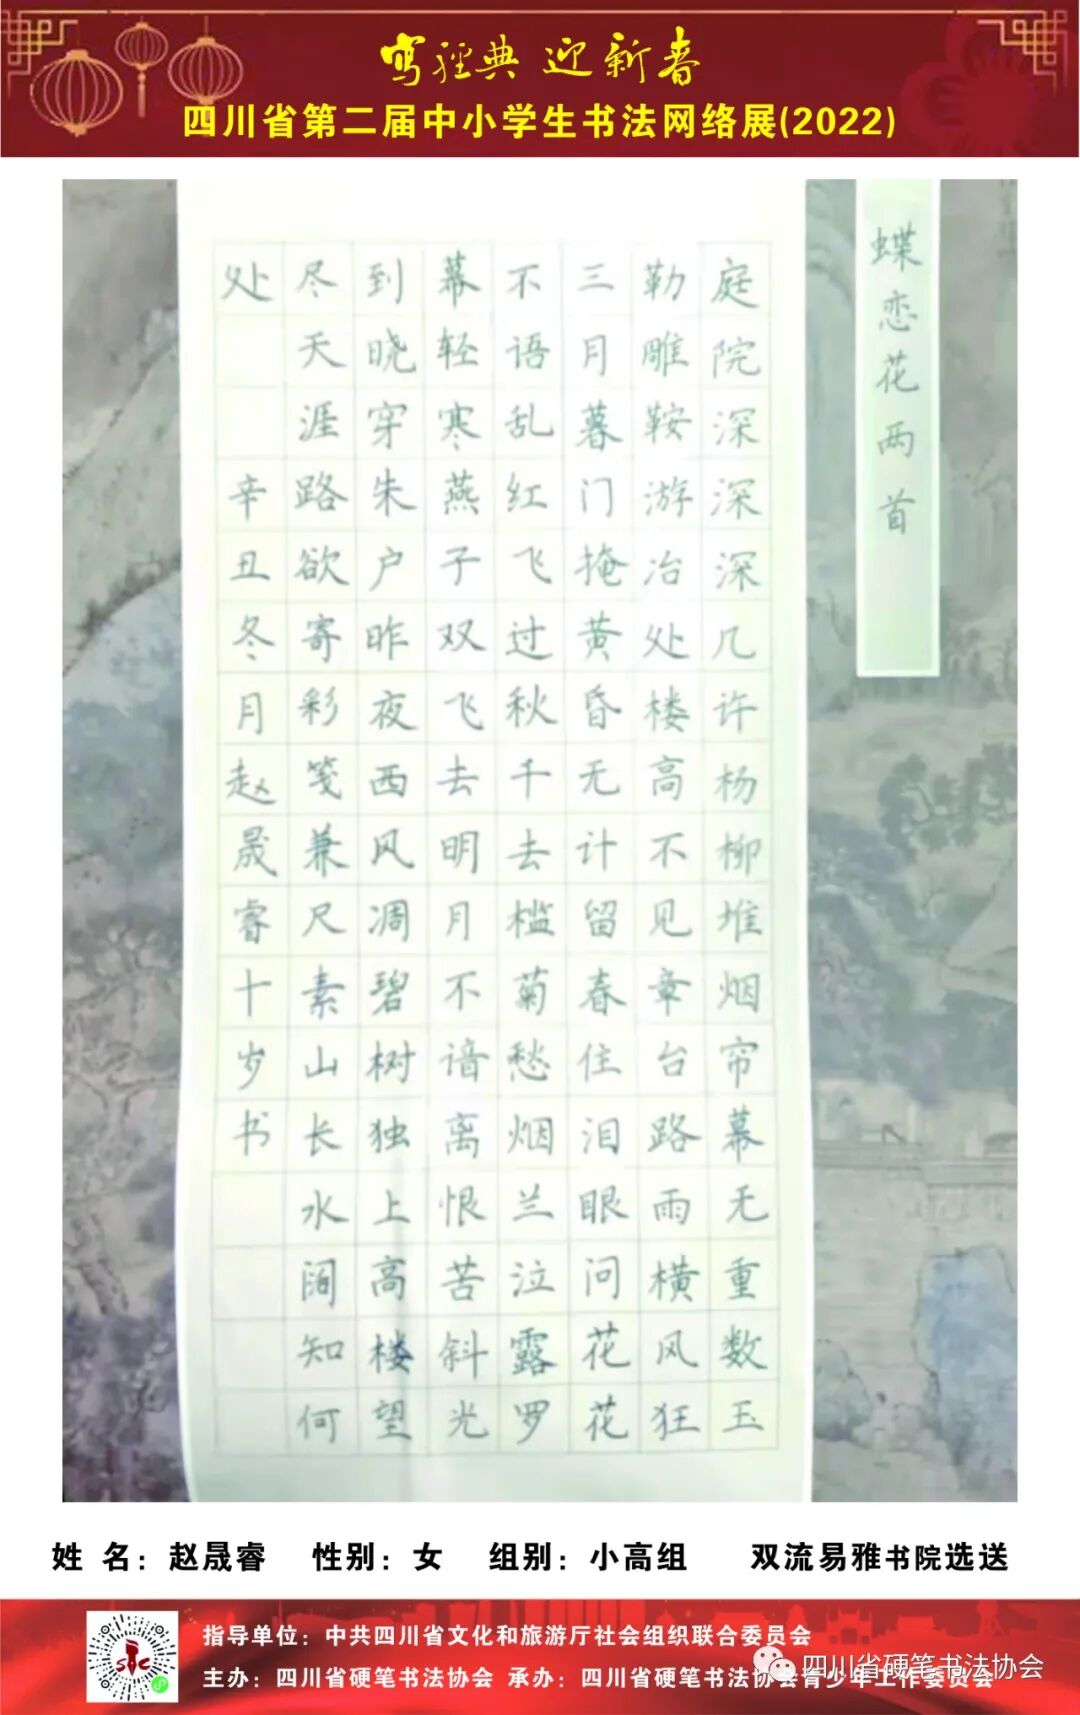 写经典 迎新春
四川省第二届中小学生书法网络展(2022)
蝶恋花两首
庭院深深深几许杨柳堆烟帘幕无重数玉
勒雕鞍游冶处楼高不见章台路雨横风狂
三月暮门掩黄昏无计留春住泪眼问花花
不语乱红飞过秋千去槛菊愁烟兰泣露罗
幕轻寒燕子双飞去明月不谙离恨苦斜光
到晓穿朱户昨夜西风凋碧树独上高楼望
尽天涯路欲寄彩笺兼尺素山长水阔知何
处 辛丑冬月赵晟睿十岁书
姓 名：赵晟睿 性别：女 组别：小高组 双流易雅书院选送
指导单位：中共四川省文化和旅游厅社会组织联合委员会
主办：四川省硬笔书法协会 承办：四川省硬笔书法协会青少年工作委员会
四川省硬笔书法协会